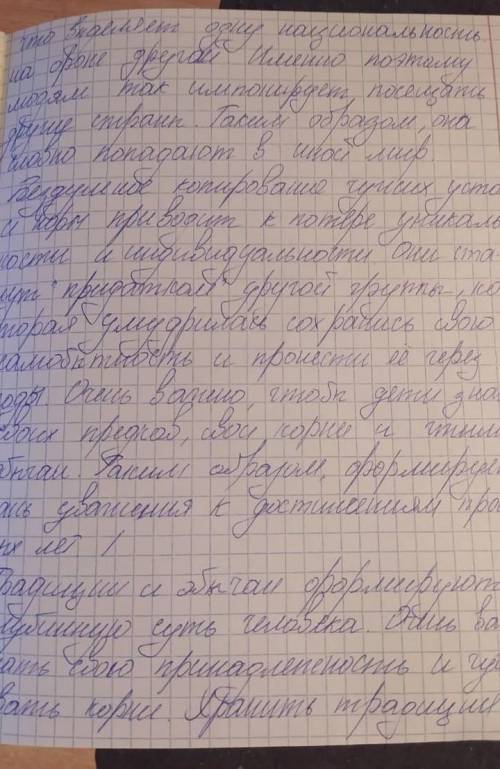 что выделяет одну национальность
на фоне другой Именно поэтому
людям так импонирдет посещать
другие стран. Таким образом, она
словно попадают в иной мир
Бездумное копирование чужих уста
и норм приводит к потере уникаль
ности и индивидуальности Они ста-
нут "придатком" другой группы, ко
торая умудрилась сохранись свою
самобытность и пронести её через
годы. Очень важно, чтобы дети зна
своих предков, свои корни и чтили
обычаи. Таким образом, формируе
ась уважения к достижениям про
ых лет
Традиции и обычаи формируют
глубинную суть человека. Очень ва
нать свою принадлежность и чу
вать корни. Хранить традиции